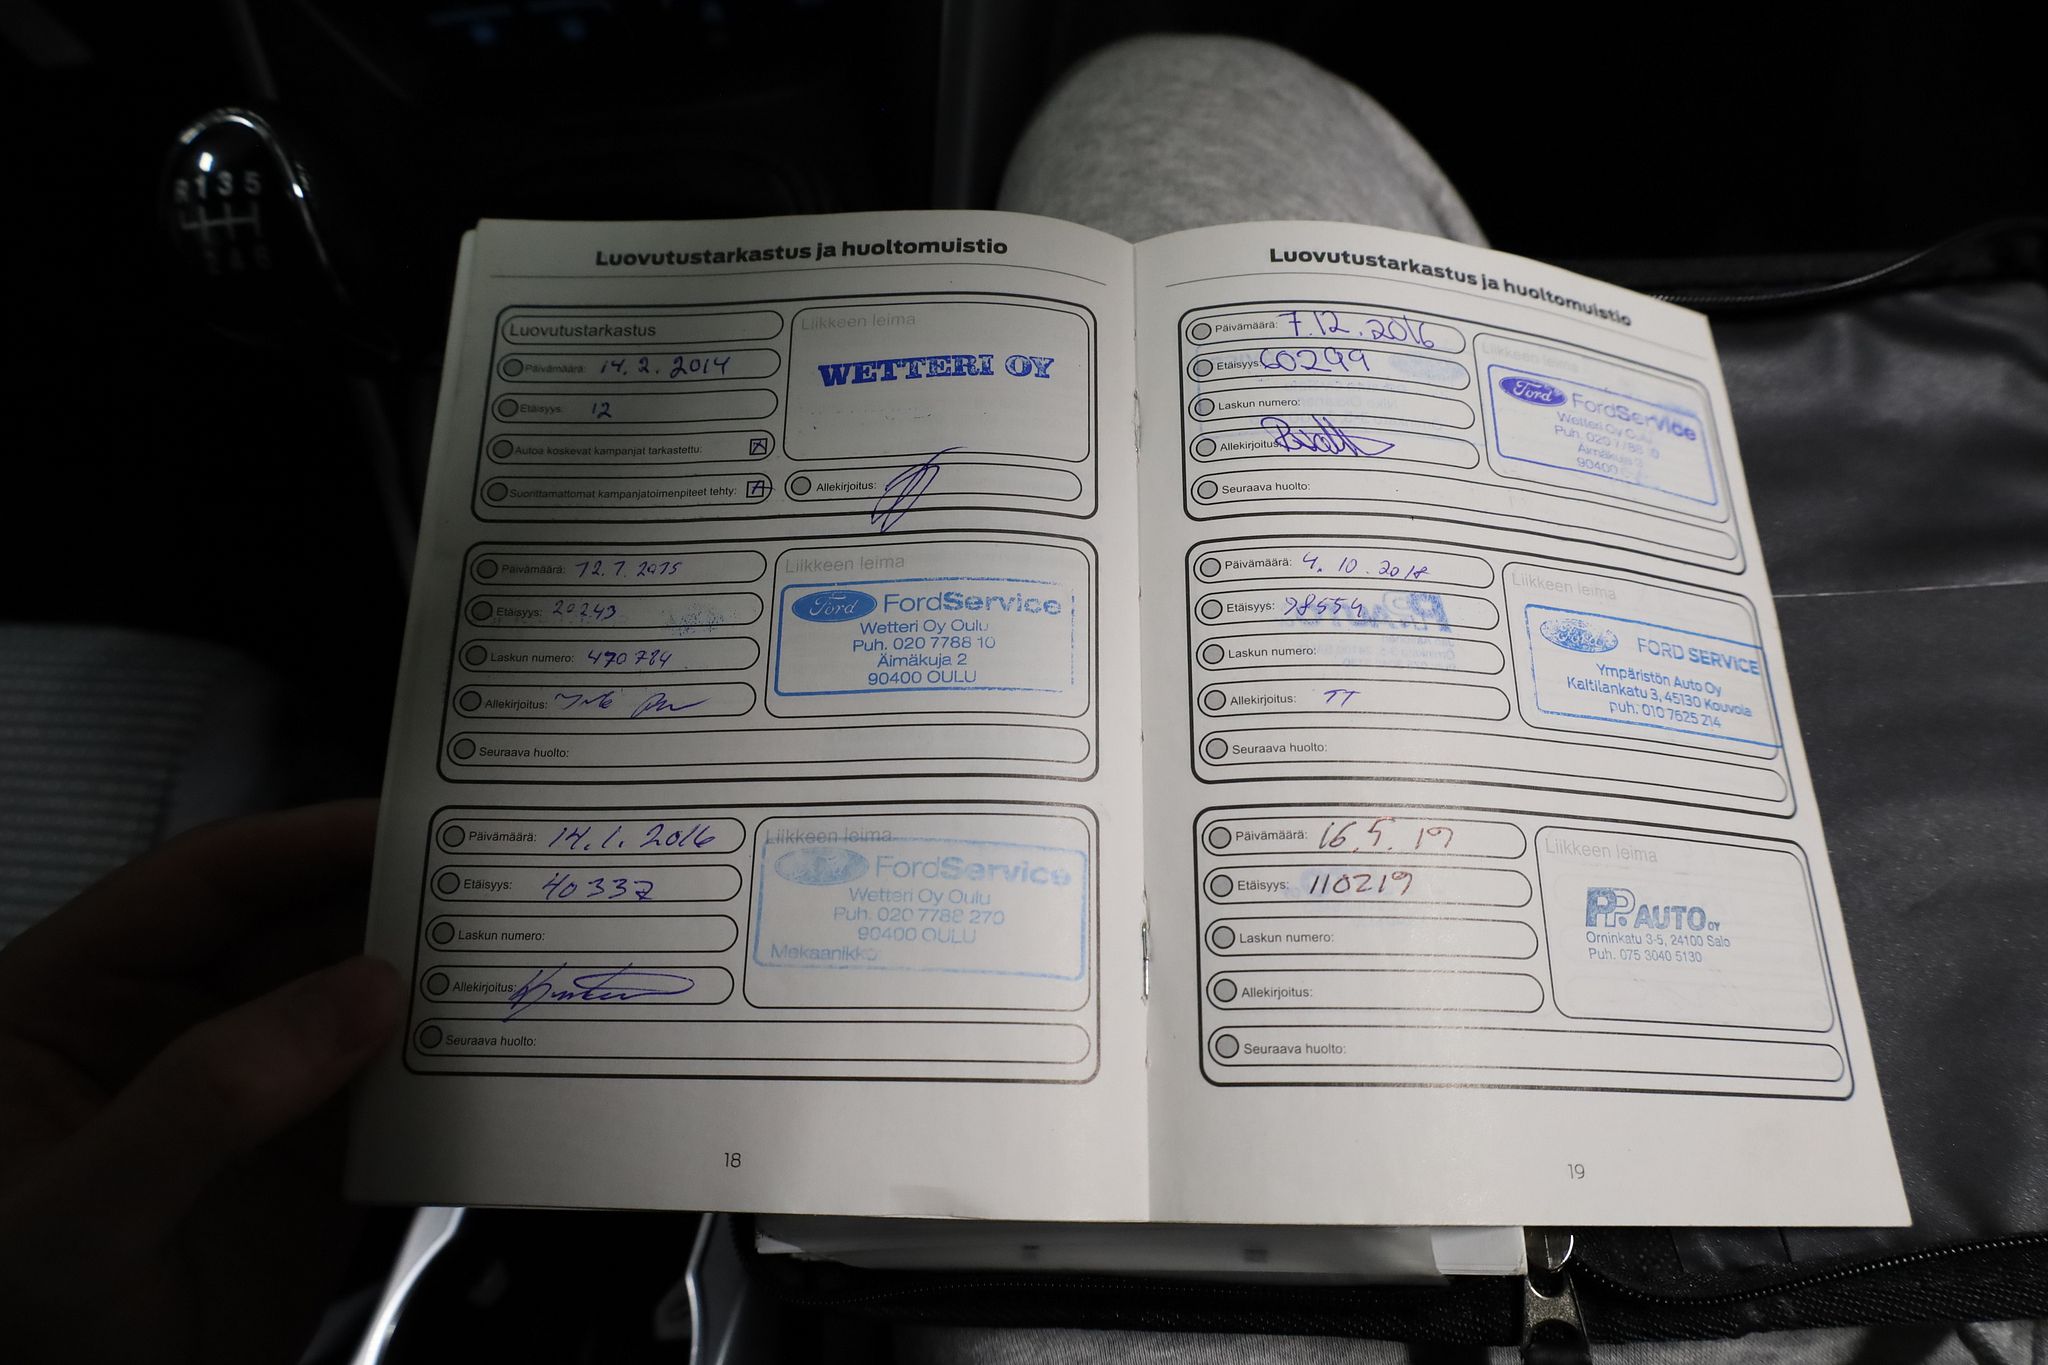 R 1 3 5
2 4 6
Luovutustarkastus ja huoltomuistio
Luovutustarkastus
Päivämäärä: 14.2.2014
Etäisyys: 12
Autoa koskevat kampanjat tarkastettu:
Suorittamattomat kampanjatoimenpiteet tehty:
Liikkeen leima
WETTERI OY
Allekirjoitus:
Päivämäärä: 12.1.2015
Etäisyys: 20243
Laskun numero: 470784
Allekirjoitus:
Seuraava huolto:
Liikkeen leima
Ford FordService
Wetteri Oy Oulu
Puh. 020 7788 10
Äimäkuja 2
90400 OULU
Päivämäärä: 14.1.2016
Etäisyys: 40337
Laskun numero:
Allekirjoitus:
Seuraava huolto:
Liikkeen leima
Ford FordService
Wetteri Oy Oulu
Puh. 020 7788 270
90400 OULU
Mekaanikko
18
Luovutustarkastus ja huoltomuistio
Päivämäärä: 7.12.2016
Etäisyys: 60299
Laskun numero:
Allekirjoitus:
Seuraava huolto:
Liikkeen leima
Ford FordService
Wetteri Oy Oulu
Puh. 020 7788 10
Äimäkuja 2
90400
Päivämäärä: 4.10.2018
Etäisyys: 98554
Laskun numero:
Allekirjoitus: TT
Seuraava huolto:
Liikkeen leima
Ford FORD SERVICE
Ympäristön Auto Oy
Kaltilankatu 3, 45130 Kouvola
puh. 010 7625 214
Päivämäärä: 16.5.19
Etäisyys: 110219
Laskun numero:
Allekirjoitus:
Seuraava huolto:
Liikkeen leima
PP. AUTO OY
Örninkatu 3-5, 24100 Salo
Puh. 075 3040 5130
19